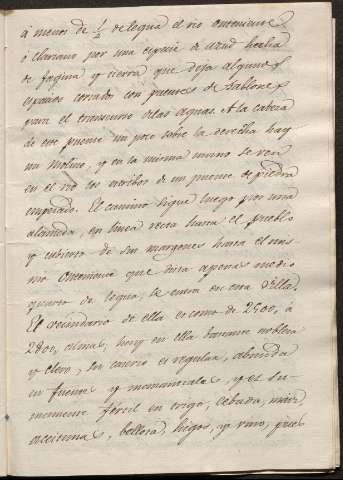 à menos de 1/2 de legua el rio onteniente
ó clariano por una especie de azud hecha
de fagina y tierra que deja algunos
espacios cerrados con puentes de tablones
para el transcurso de las aguas. A la cabeza
de este puente un poco sobre la derecha hay
un Molino, y en la misma mano se ven
en el rio los estribos de un puente de piedra
empezado. El camino sigue luego por una
alameda, en linea recta hasta el pueblo
y cubierto de sus margenes hasta el mis-
mo onteniente que dista apenas medio
quarto de legua, se entra en esta Villa.
El vecindario de ella es como de 2500, à
2800, almas, hay en ella bastante nobleza
y clero, su caserio es regular, abunda
en fuentes y manantiales, y es su-
mamente fértil en trigo, cebada, maiz
aceitunas, bellota, higos, y vino, pues